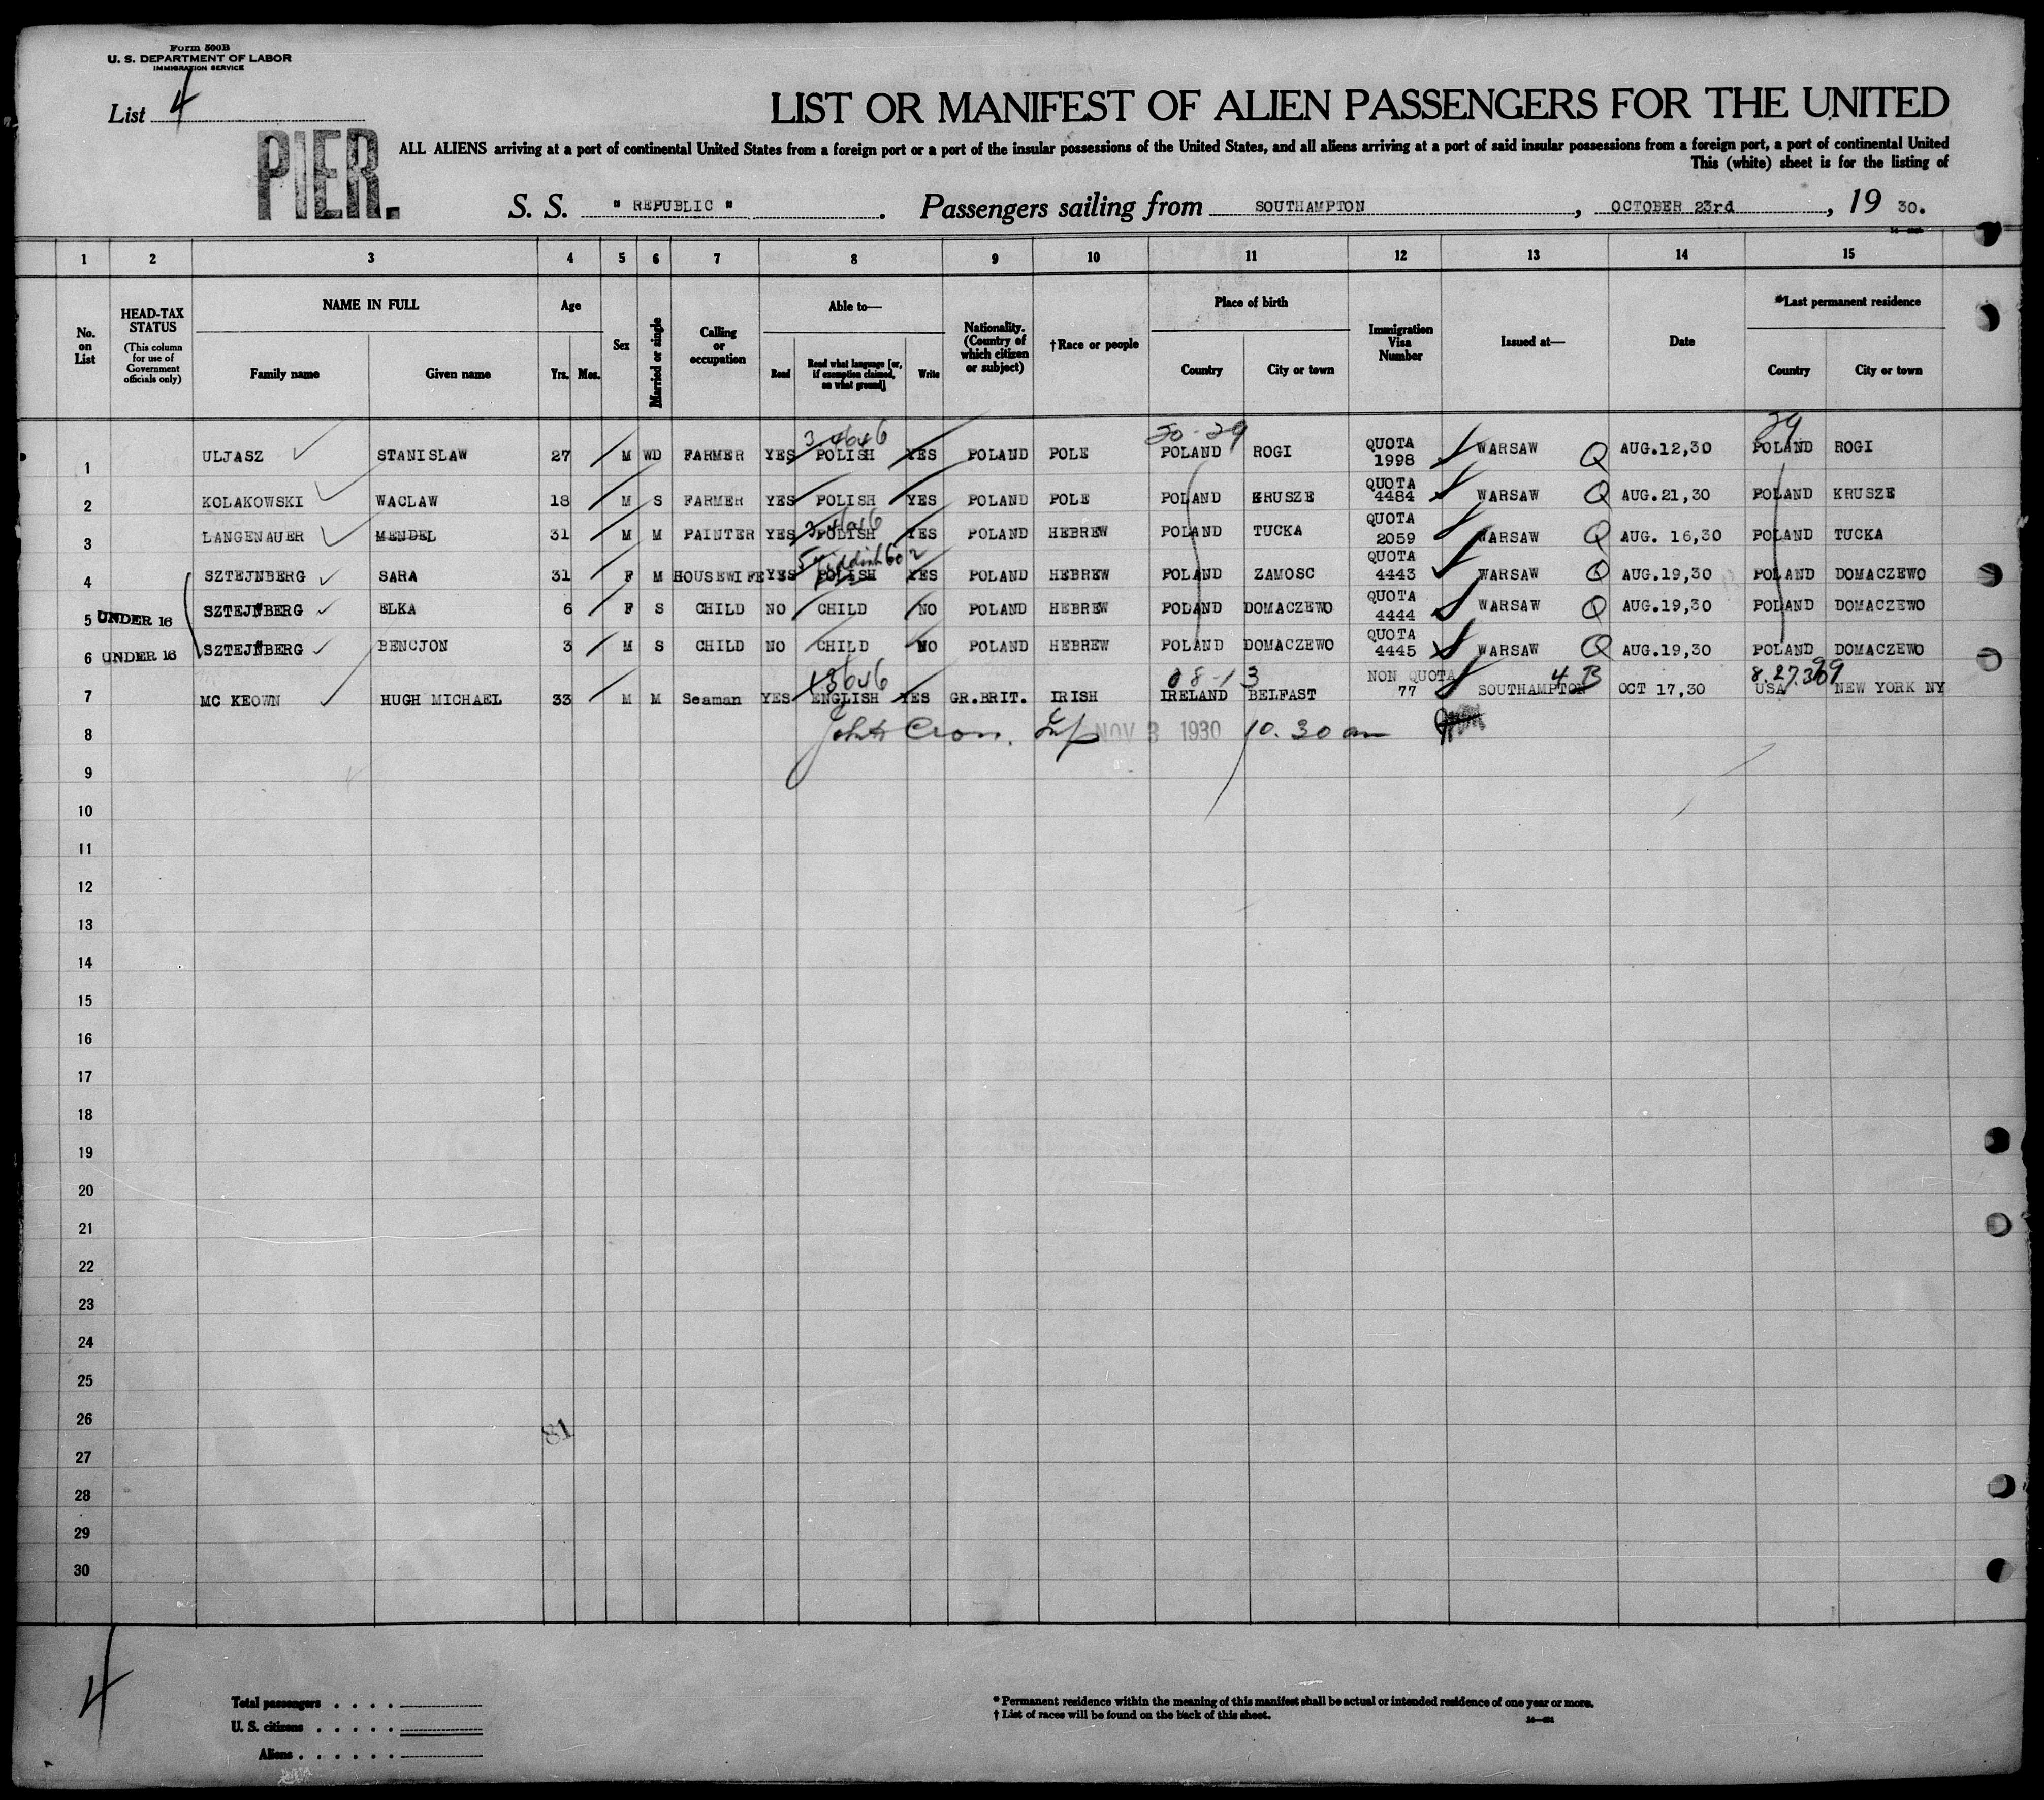 Form 500B
U. S. DEPARTMENT OF LABOR
IMMIGRATION SERVICE
List 4
PIER.
LIST OR MANIFEST OF ALIEN PASSENGERS FOR THE UNITED
ALL ALIENS arriving at a port of continental United States from a foreign port or a port of the insular possessions of the United States, and all aliens arriving at a port of said insular possessions from a foreign port, a port of continental United
This (white) sheet is for the listing of
S. S. " REPUBLIC " . Passengers sailing from SOUTHAMPTON , OCTOBER 23rd , 19 30.
1 2 3 4 5 6 7 8 9 10 11 12 13 14 15
No. on List
HEAD-TAX STATUS
(This column for use of Government officials only)
NAME IN FULL
Family name
Given name
Age
Yrs. Mos.
Sex
Married or single
Calling or occupation
Able to—
Read
Read what language [or, if exemption claimed, on what ground]
Write
Nationality. (Country of which citizen or subject)
†Race or people
Place of birth
Country
City or town
Immigration Visa Number
Issued at—
Date
*Last permanent residence
Country
City or town
3-4646 50-29 29
1 ULJASZ STANISLAW 27 M WD FARMER YES POLISH YES POLAND POLE POLAND ROGI QUOTA 1998 WARSAW Q AUG.12,30 POLAND ROGI
2 KOLAKOWSKI WACLAW 18 M S FARMER YES POLISH YES POLAND POLE POLAND KRUSZE QUOTA 4484 WARSAW Q AUG.21,30 POLAND KRUSZE
3 LANGENAUER MENDEL 31 M M PAINTER YES POLISH YES POLAND HEBREW POLAND TUCKA QUOTA 2059 WARSAW Q AUG. 16,30 POLAND TUCKA
Yiddish
4 SZTEJNBERG SARA 31 F M HOUSEWIFE YES POLISH YES POLAND HEBREW POLAND ZAMOSC QUOTA 4443 WARSAW Q AUG.19,30 POLAND DOMACZEWO
5 UNDER 16 SZTEJNBERG ELKA 6 F S CHILD NO CHILD NO POLAND HEBREW POLAND DOMACZEWO QUOTA 4444 WARSAW Q AUG.19,30 POLAND DOMACZEWO
6 UNDER 16 SZTEJNBERG BENCJON 3 M S CHILD NO CHILD NO POLAND HEBREW POLAND DOMACZEWO QUOTA 4445 WARSAW Q AUG.19,30 POLAND DOMACZEWO
7 MC KEOWN HUGH MICHAEL 33 M M Seaman YES ENGLISH YES GR.BRIT. IRISH IRELAND BELFAST NON QUOTA 77 SOUTHAMPTON 4 B OCT 17,30 USA NEW YORK NY
8 NOV 3 1930 10.30 am
9
10
11
12
13
14
15
16
17
18
19
20
21
22
23
24
25
26
81
27
28
29
30
4
Total passengers . . . .
U. S. citizens . . . . .
Aliens . . . . . .
* Permanent residence within the meaning of this manifest shall be actual or intended residence of one year or more.
† List of races will be found on the back of this sheet.